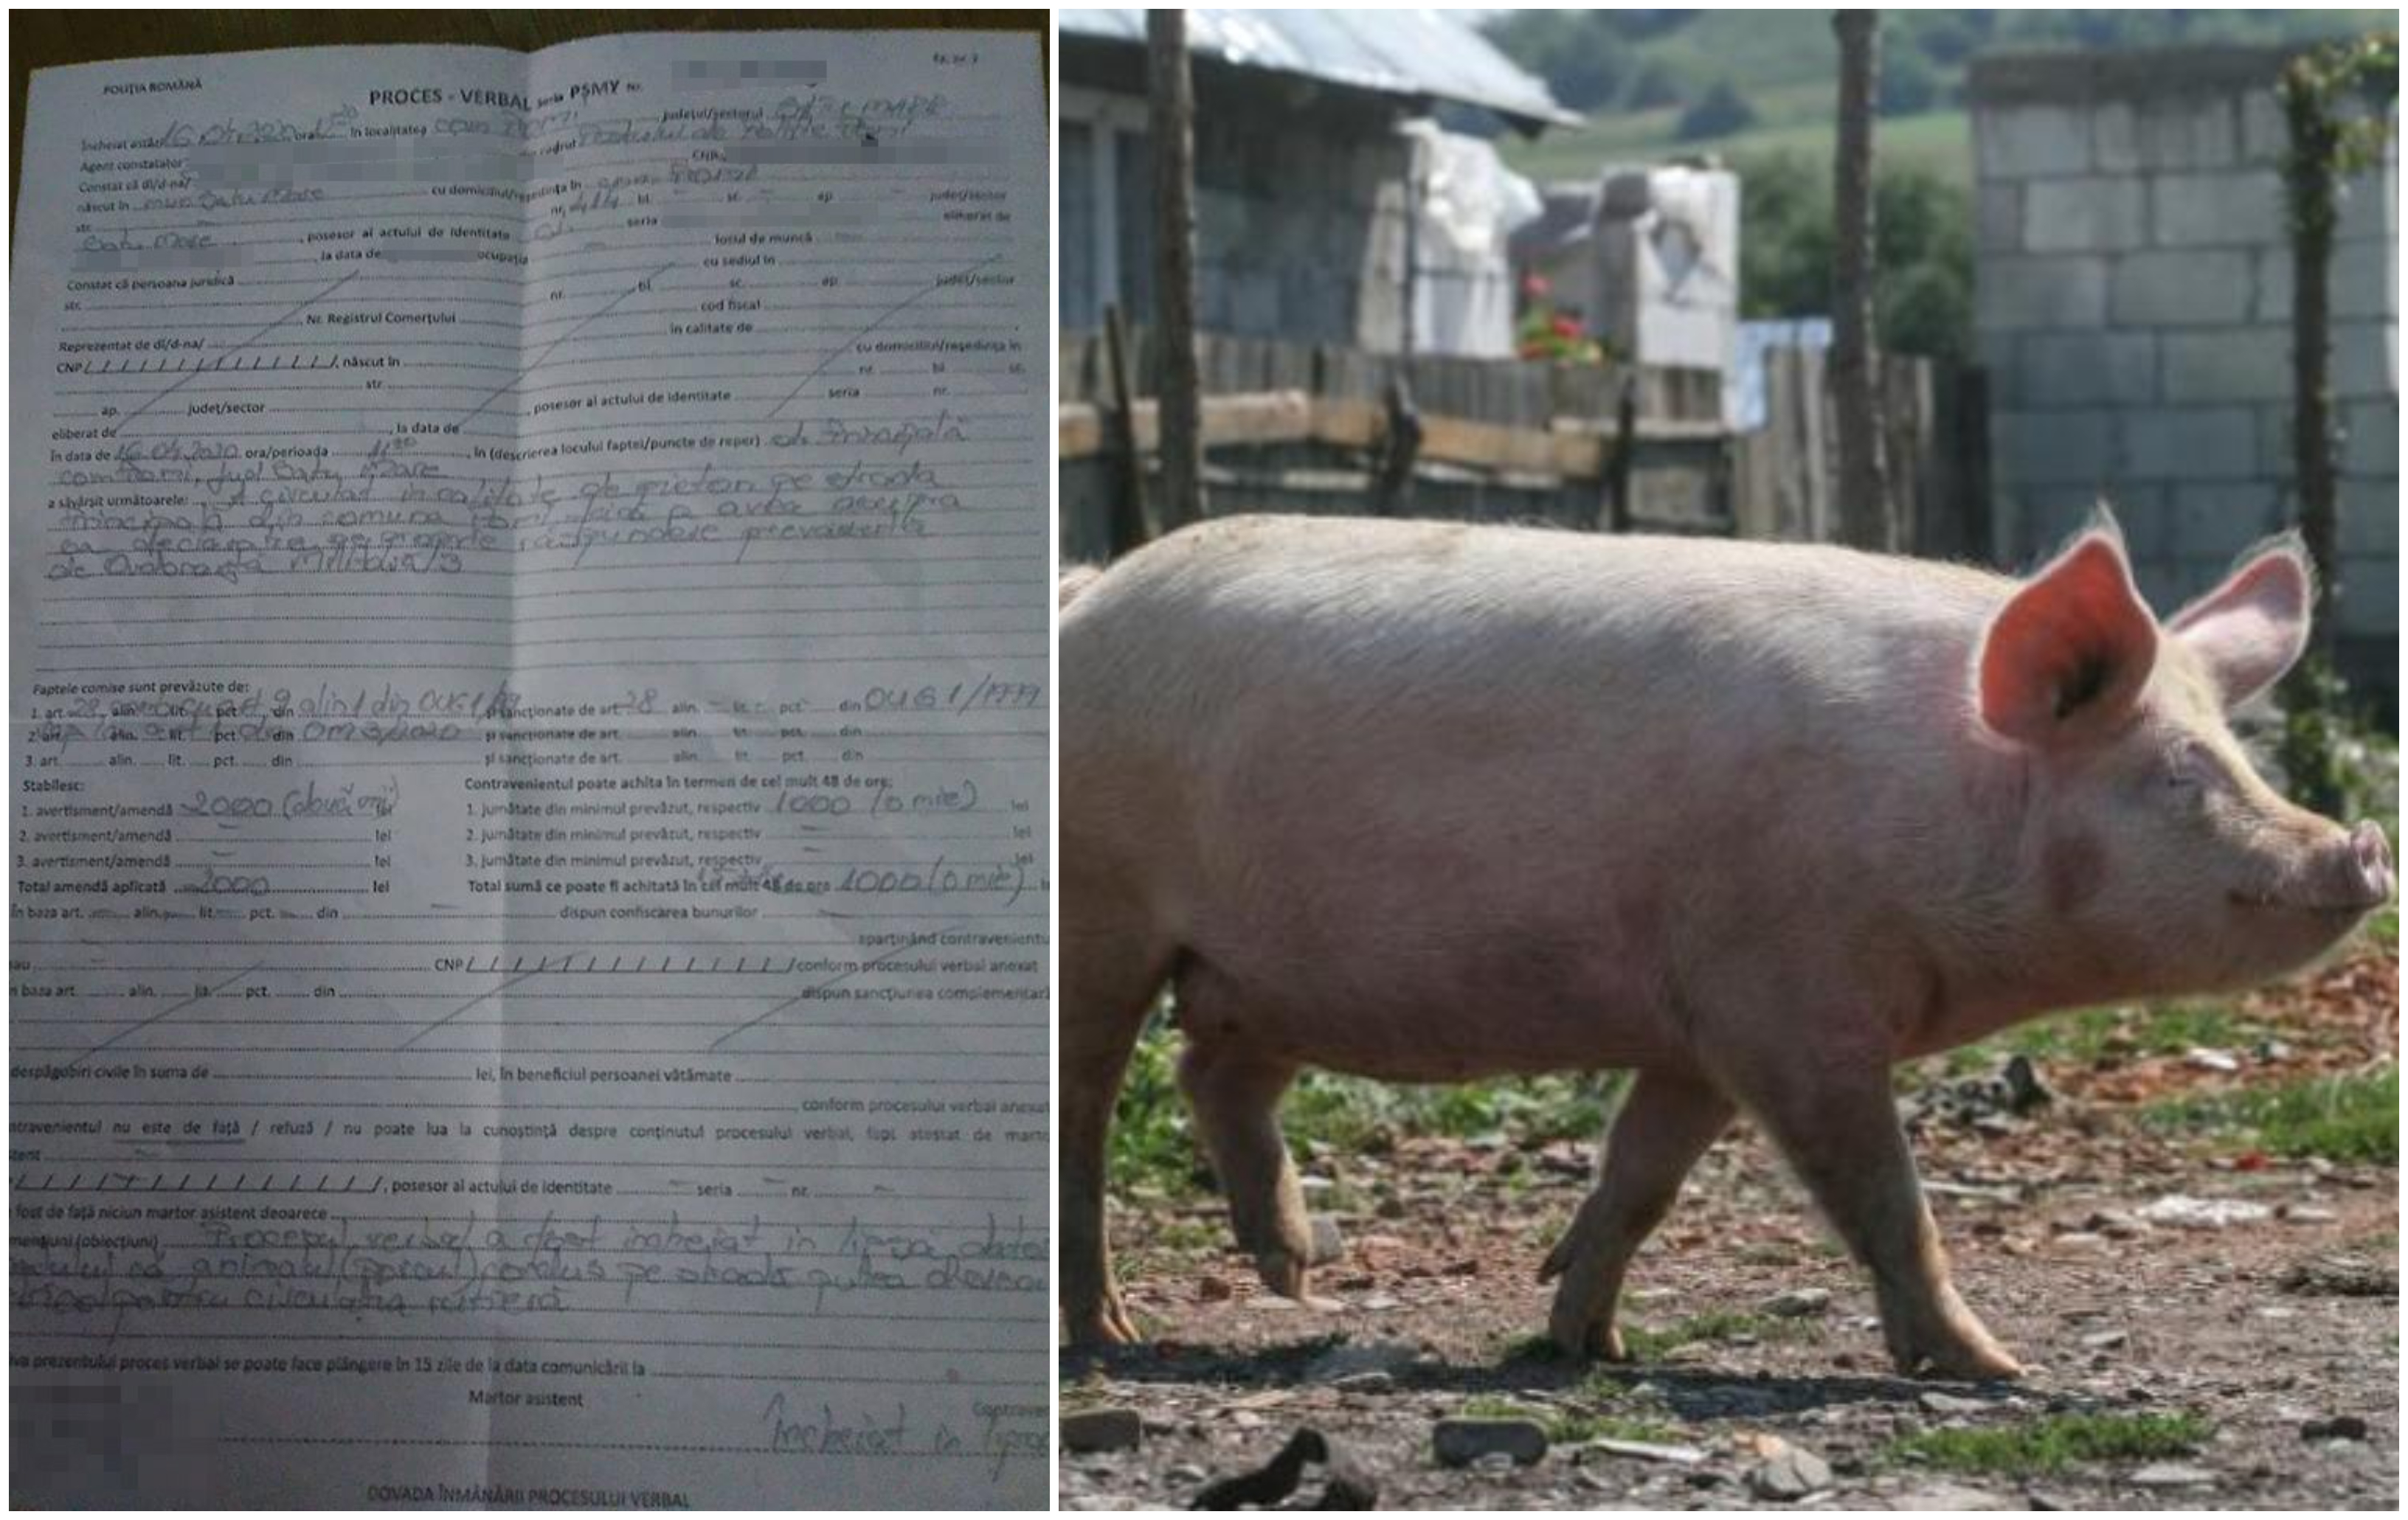 POLIȚIA ROMÂNĂ
PROCES - VERBAL seria PSMY Nr.
Încheiat astăzi 16.04.2020 ora în localitatea com. județul/sectorul
Agent constatator cadrul Postul de Poliție
Constat că dl/d-na/ CNP
născut în mun Satu Mare cu domiciliul/reședința în
str. nr. bl. sc. ap. județ/sector
Satu Mare, posesor al actului de identitate seria eliberat de
la data de ocupația locul de muncă
Constat că persoana juridică cu sediul în
str. nr. bl. sc. ap. județ/sector
Nr. Registrul Comerțului cod fiscal
Reprezentat de dl/d-na/ în calitate de
CNP/ / / / / / / / / / / / / /, născut în cu domiciliul/reședința în
str. nr. bl. sc.
ap. județ/sector, posesor al actului de identitate seria nr.
eliberat de, la data de
În data de 16.04.2020 ora/perioada, în (descrierea locului faptei/puncte de reper) str. Principală
com, jud Satu Mare
a săvârșit următoarele: A circulat în calitate de pieton pe strada
principală din comuna fără a avea asupra
sa declarația pe proprie răspundere prevăzută
de Ordonanța Militară/3
Faptele comise sunt prevăzute de:
1. art. 28 alin. lit. pct. din 9 alin 1 din OUG 1/99 și sancționate de art. 28 alin. lit. pct. din OUG 1/1999
2. art. alin. lit. pct. din OM 3/2020 și sancționate de art. alin. lit. pct. din
3. art. alin. lit. pct. din și sancționate de art. alin. lit. pct. din
Stabilesc: Contravenientul poate achita în termen de cel mult 48 de ore:
1. avertisment/amendă 2000 (două mii) lei 1. jumătate din minimul prevăzut, respectiv 1000 (o mie) lei
2. avertisment/amendă lei 2. jumătate din minimul prevăzut, respectiv lei
3. avertisment/amendă lei 3. jumătate din minimul prevăzut, respectiv lei
Total amendă aplicată 2000 lei Total sumă ce poate fi achitată în cel mult 48 de ore 1000 (o mie)
În baza art. alin. lit. pct. din dispun confiscarea bunurilor
aparținând contravenientu
CNP/ / / / / / / / / / / / / /conform procesului verbal anexat
n baza art. alin. lit. pct. din dispun sancțiunea complementar
despăgubiri civile în suma de lei, în beneficiul persoanei vătămate
conform procesului verbal anexat
ntravenientul nu este de față / refuză / nu poate lua la cunoștință despre conținutul procesului verbal, fapt atestat de marto
/ / / / / / / / / / / / / /, posesor al actului de identitate seria nr.
fost de față niciun martor asistent deoarece
mențiuni (obiecțiuni) Procesul verbal a fost încheiat în lipsă
că animalul (porcul) condus pe stradă putea
pentru circulația rutieră
va prezentului proces verbal se poate face plângere în 15 zile de la data comunicării la
Martor asistent Contraven
Încheiat în lipsa
DOVADA ÎNMÂNĂRII PROCESULUI VERBAL